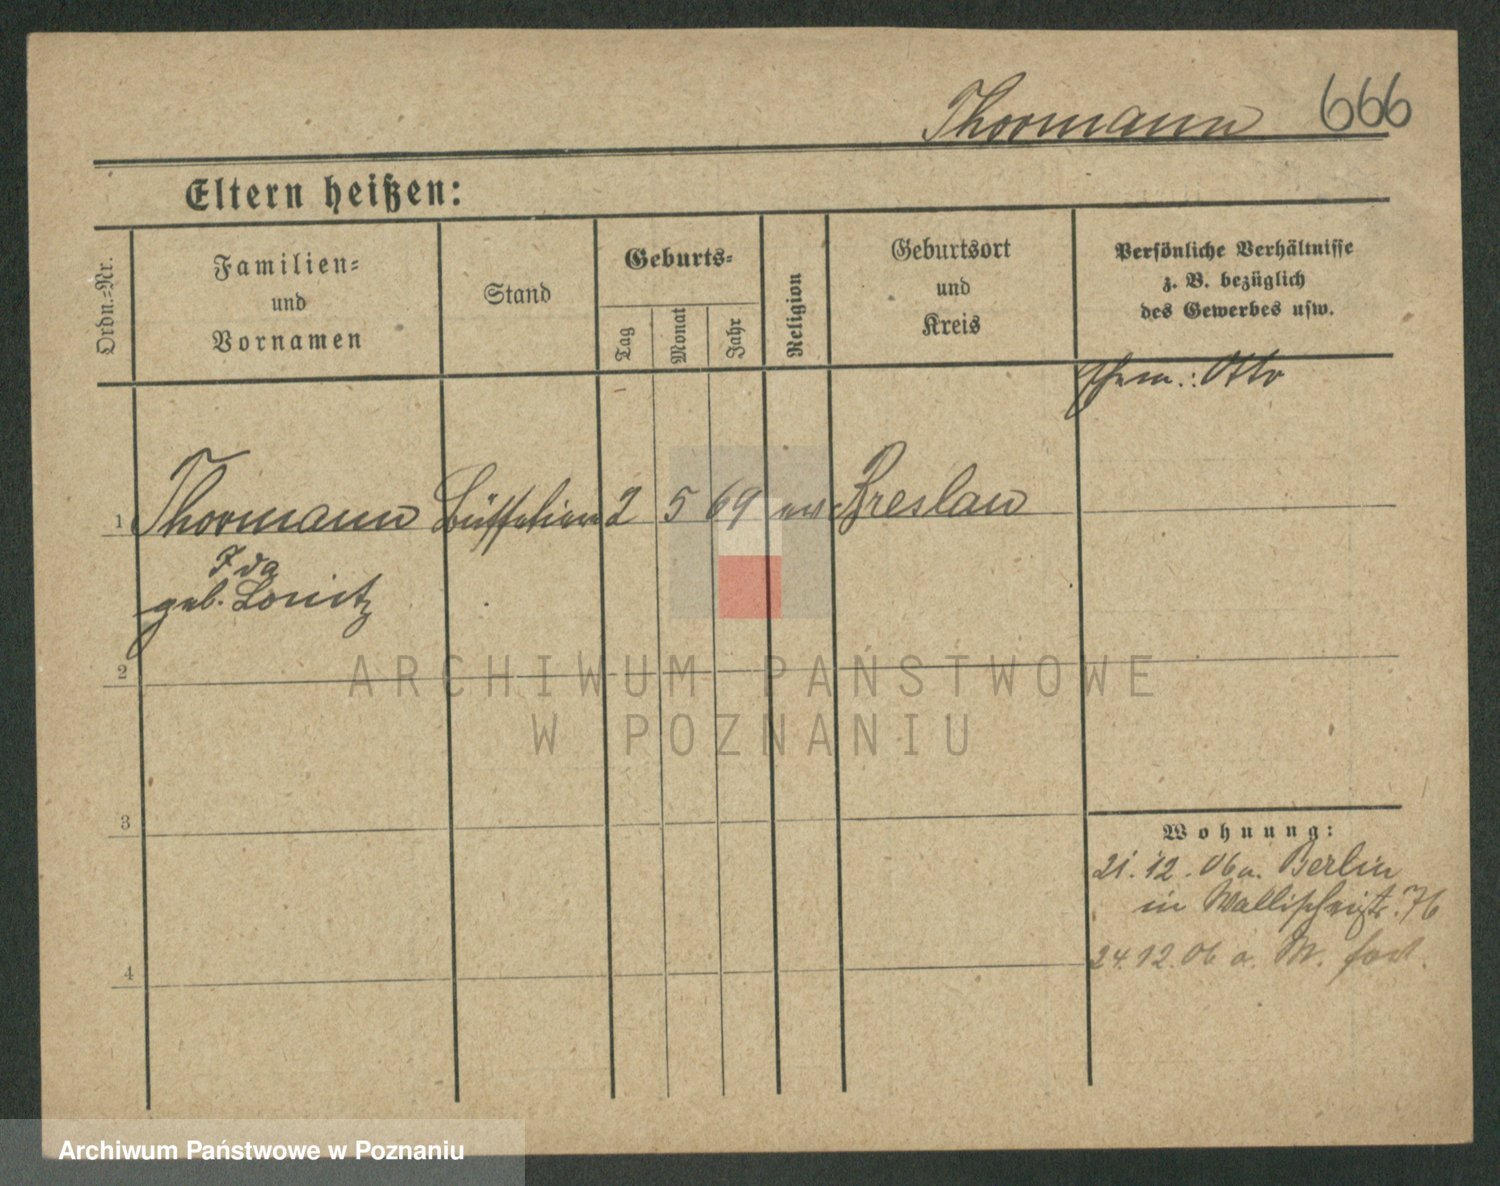 Thormann 666
Eltern heißen:
Ordn.=Nr.
Familien=
und
Vornamen
Stand
Geburts=
Tag
Monat
Jahr
Religion
Geburtsort
und
Kreis
Persönliche Verhältnisse
z. B. bezüglich
des Gewerbes usw.
Ehem.: Otto
1 Thormann 2 5 69 ev Breslau
Ida
geb.
2
3
4
Wohnung:
21. 12. 06 a. Berlin
in Wallischeistr. 76
24. 12. 06 a. fort.
ARCHIWUM PAŃSTWOWE
W POZNANIU
Archiwum Państwowe w Poznaniu